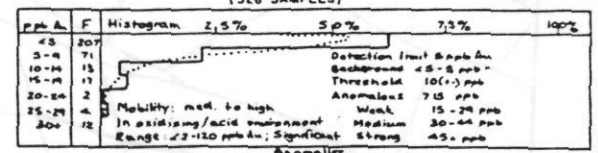 (326 SAMPLES)
ppb Au F Histogram 2,5% 5,0% 7,5% 100%
<5 207
5-9 71 Detection limit 5 ppb Au
10-14 13 Background <5-9 ppb
15-19 17 Threshold 10(+) ppb
20-24 2 Anomalous >15 ppb
25-29 4 Mobility: med. to high Weak 15-29 ppb
30+ 12 In oxidising/acid environment Medium 30-44 ppb
Range: <2-120 ppb Au; Significant Strong 45+ ppb
Anomalies